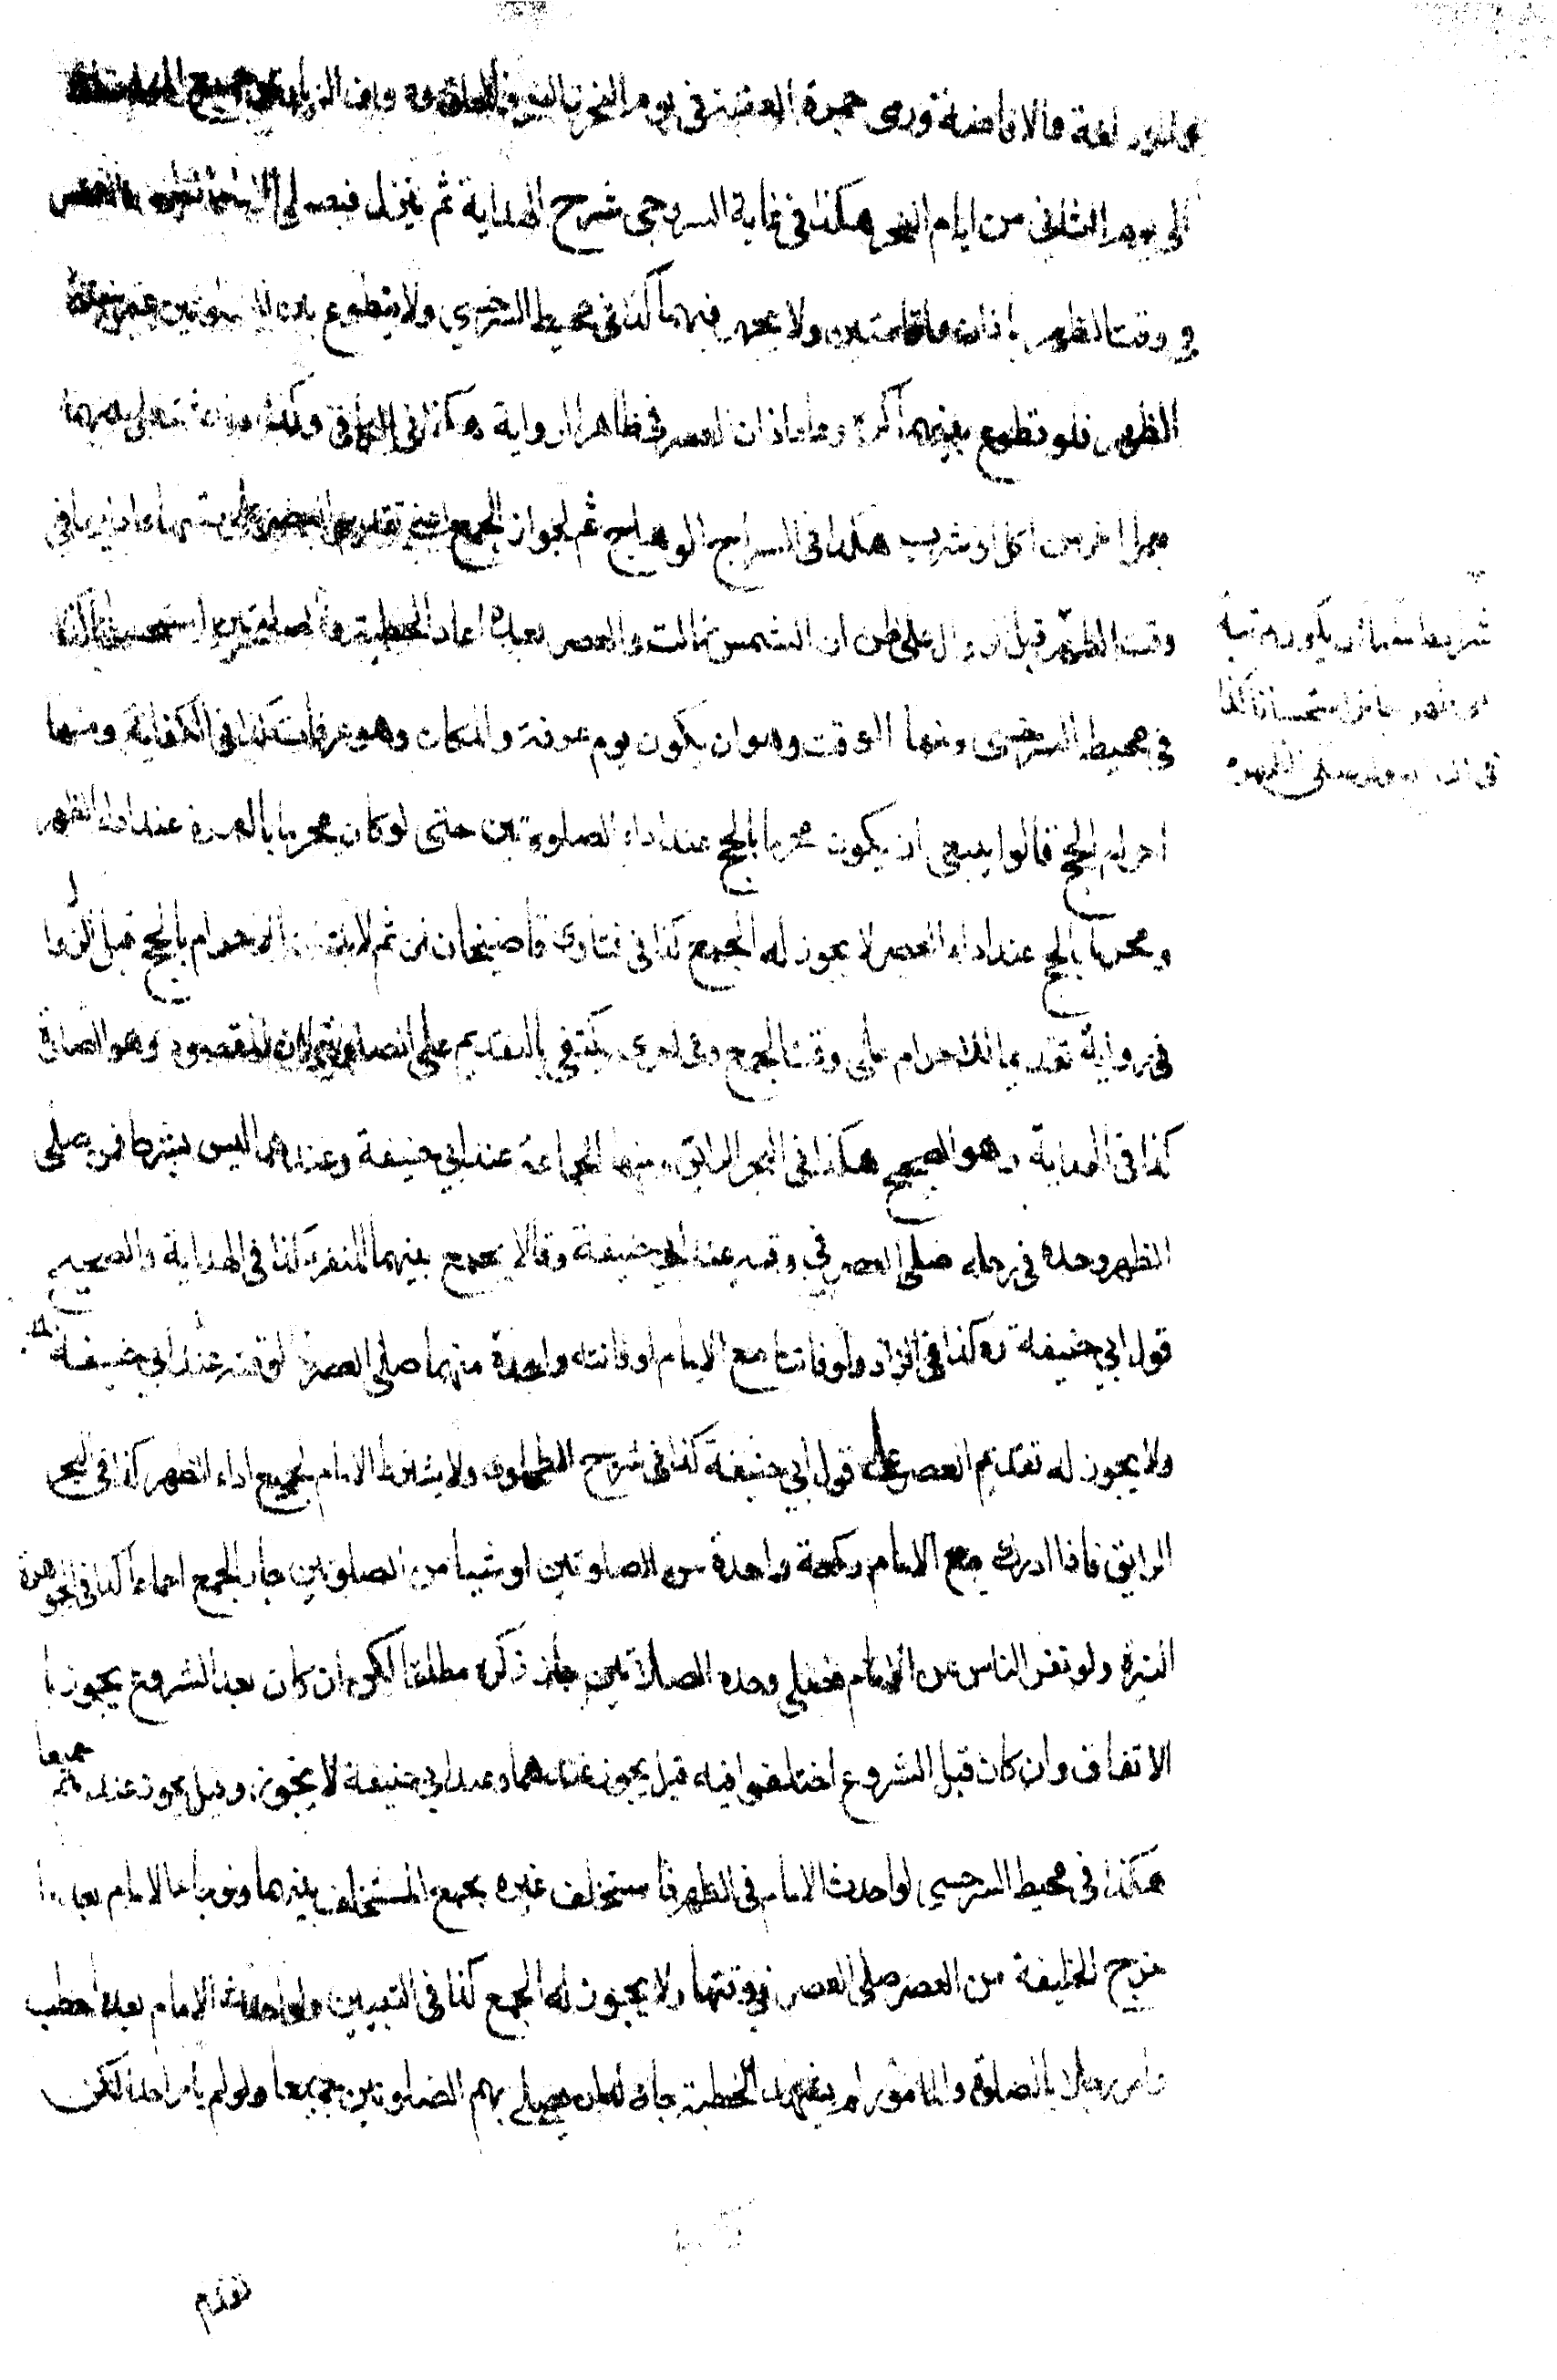 والمزدلفة والافاضة ورمى جمرة العقبة في يوم النحر
الى يوم الثاني من ايام النحر هكذا في غاية السروجي شرح الهداية ثم ينزل فيصلي
في وقت الظهر باذان واقامتين ولا يجهر فيهما كذا في محيط السرخسي ولا يتطوع بين
الظهر فلو تطوع بينهما كره واعاد اذان العصر في ظاهر الرواية هكذا في الكافي وكذا
عملا اخر من اكل او شرب هكذا في السراج الوهاج ثم لجواز الجمع
وقت الظهر قبل الزوال على ظن ان الشمس زالت والعصر بعده اعاد الخطبة والصلوتين استحسانا كذا
في محيط السرخسى ومنها الوقت وهو ان يكون يوم عرفة والمكان وهو عرفات كذا في الكفاية ومنها
احرام الحج قالوا ينبغى ان يكون محرما بالحج عند اداء الصلوتين حتى لو كان محرما بالعمرة عند اداء الظهر
ومحرما بالحج عند اداء العصر لا يجوز له الجمع كذا في فتاوى قاضيخان ثم لا بد من الاحرام بالحج قبل الزوال
في رواية تقديما للاحرام على وقت الجمع وفى اخرى يكتفي بالتقديم على الصلوتين لان المقصود هو الصلاة
كذا في الهداية وهو الصحيح هكذا فى البحر الرايق ومنها الجماعة عند ابي حنيفة وعندهما ليس بشرط فمن صلى
الظهر وحده في رحله صلى العصر في وقته عند ابي حنيفة وقالا يجمع بينهما المنفرد كذا في الهداية والصحيح
قول ابي حنيفة ره كذا في الزاد ولو فاتتا مع الامام او فاتته واحدة منهما صلى العصر لوقته عند ابي حنيفة
ولا يجوز له تقديم العصر على قول ابي حنيفة كذا في شرح الطحاوي ولا يشترط الامام لجميع اداء الظهر كذا في البحر
الرايق فاذا ادرك مع الامام ركعة واحدة من الصلوتين او شيا من الصلوتين جاز الجمع اجماعا كذا في الجوهرة
النيرة ولو نفر الناس عن الامام فصلى وحده الصلاتين جاز ذكره مطلقا لكن ان كان بعد الشروع يجوز با
الاتفاق وان كان قبل الشروع اختلفوا فيه قيل يجوز عندهما وعند ابي حنيفة لا يجوز وقيل يجوز عندهم جميعا
هكذا في محيط السرخسي لو احدث الامام في الظهر فاستخلف غيره يجمع المستخلف بينهما ولو جاء الامام بعد ما
خرج الخليفة من العصر صلى العصر في وقتها ولا يجوز له الجمع كذا في التبيين ولو احدث الامام بعد ما خطب
وامر رجلا بالصلوة والمامور لم يشهد الخطبة جاز له ان يصلي بهم الصلوتين جميعا ولو لم يامر احدا لكن
تقدم
شرايط منها ان يكون مرتبة